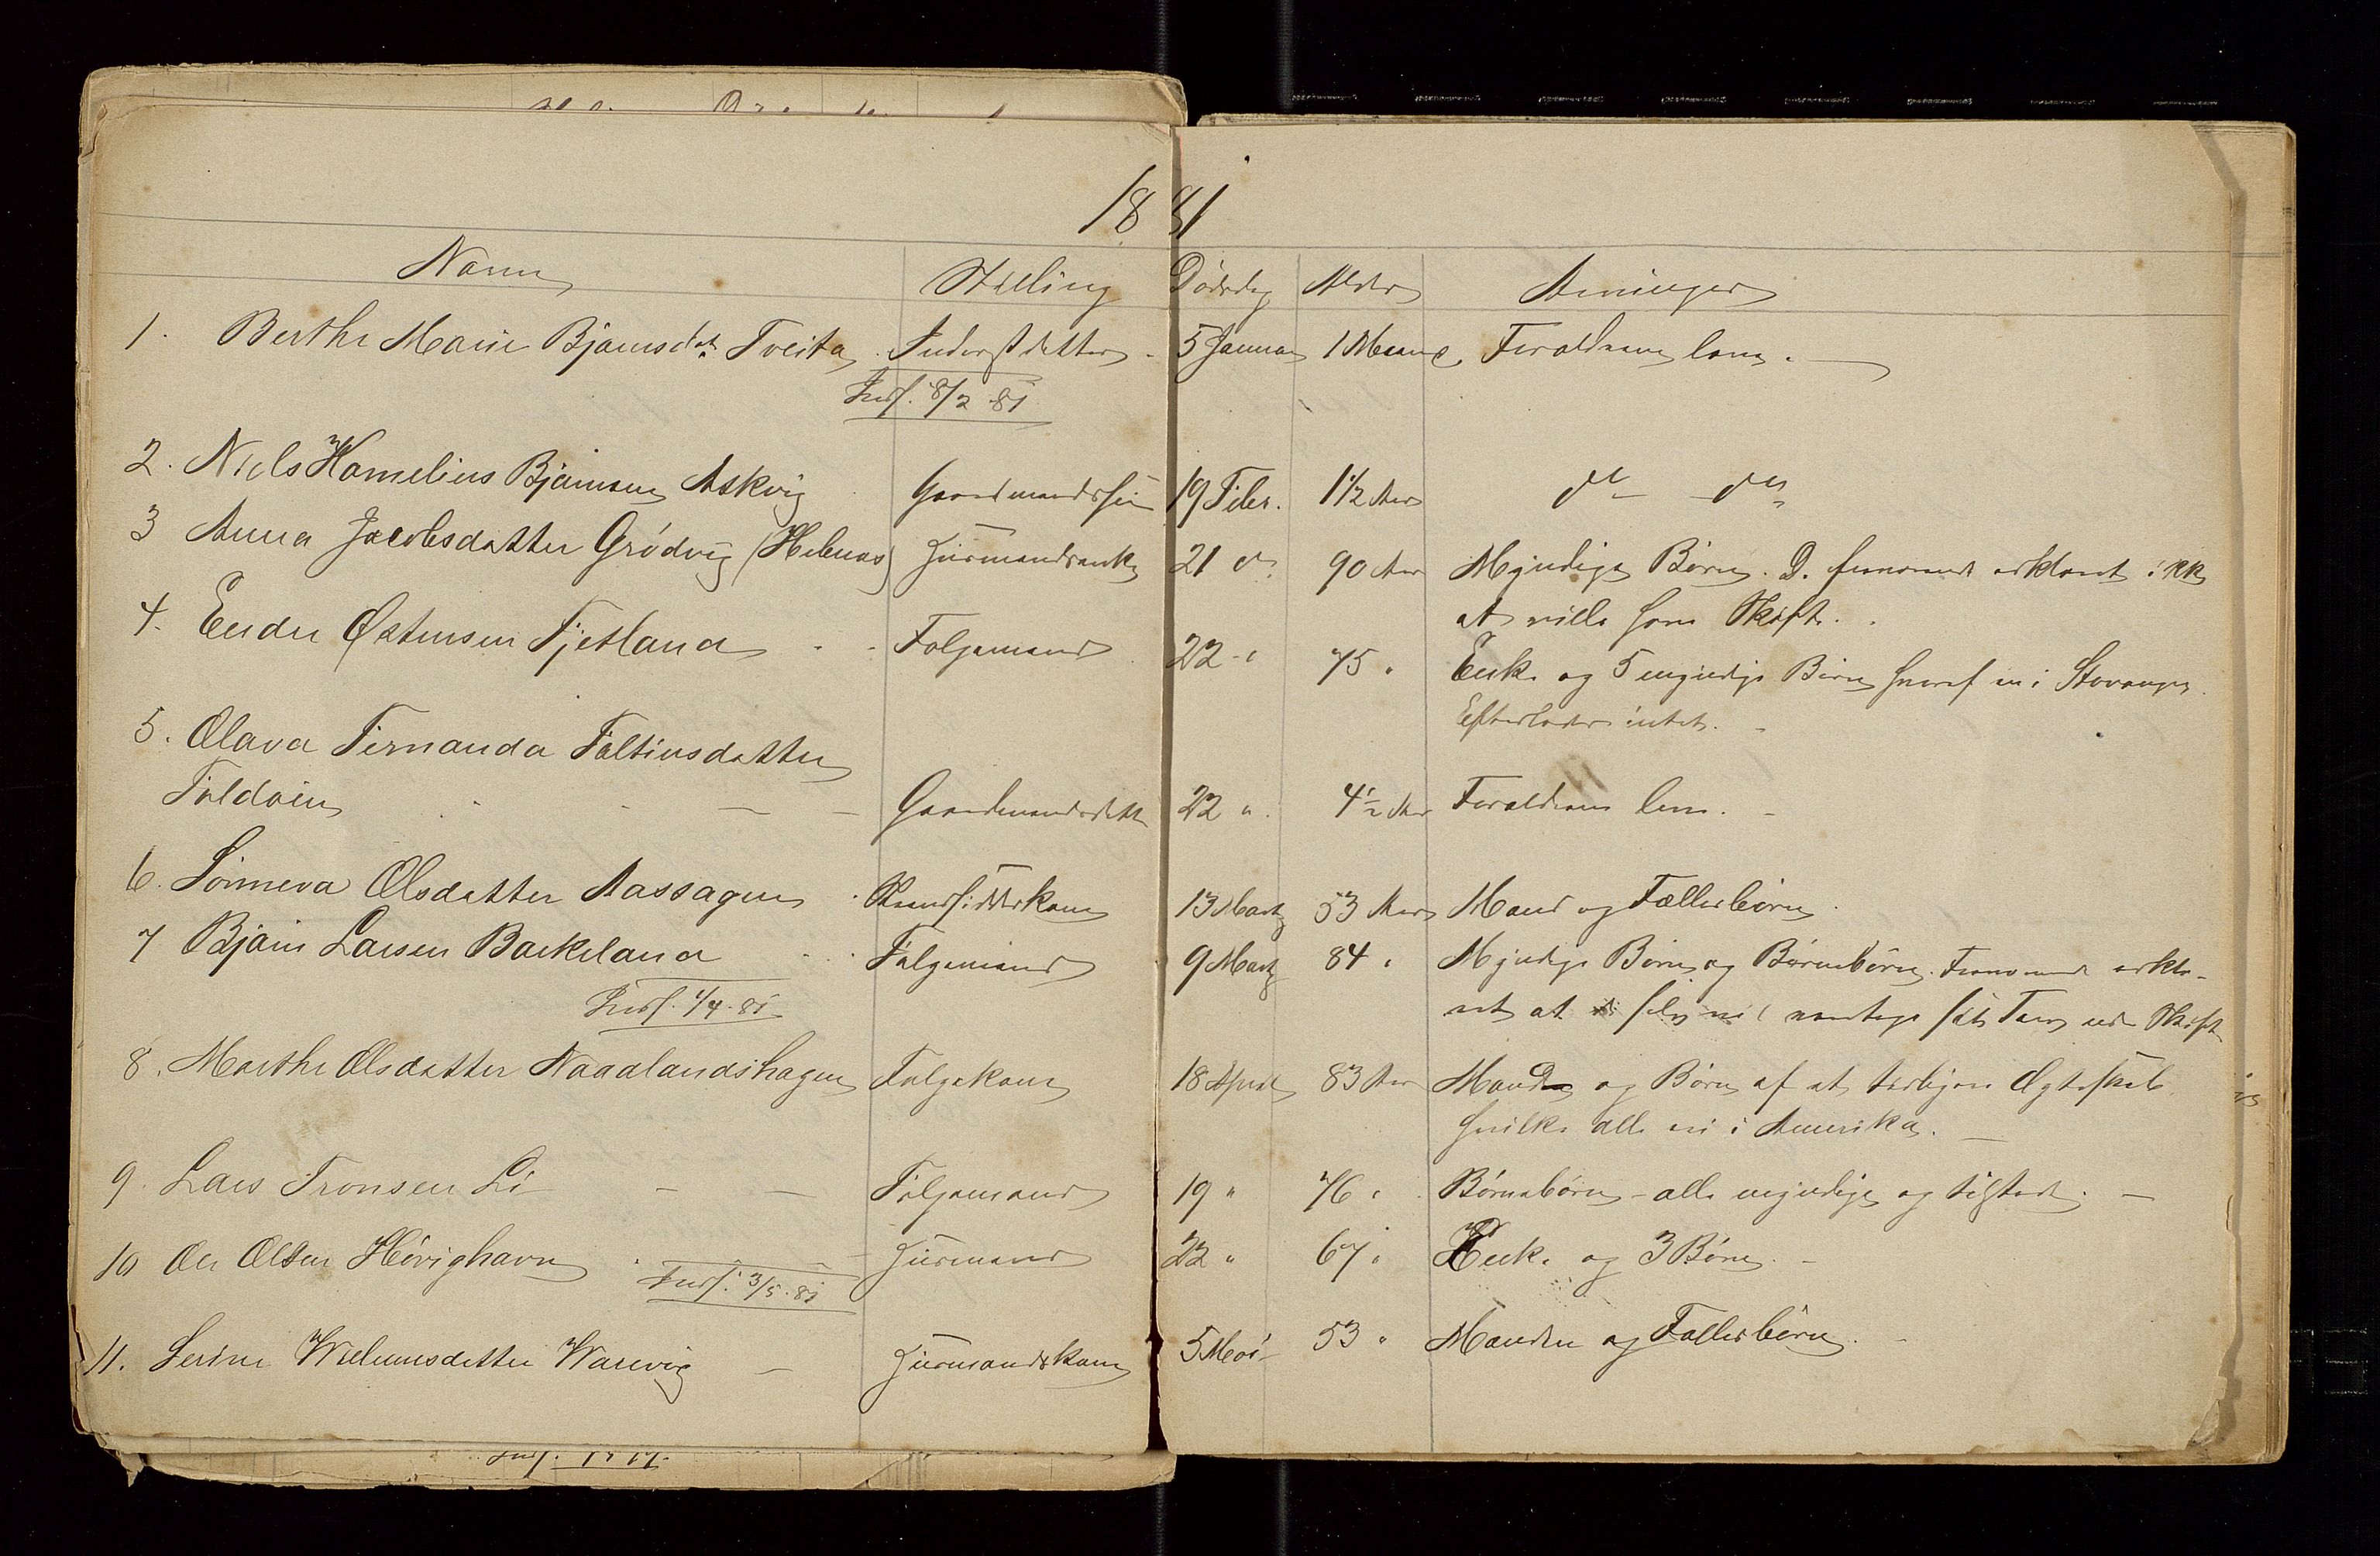 1881
Navn Stilling Dødsdag Alder Arvinger
1. Berthe Marie Bjørnsdat. Tveita Inderstdatter 5 Januar 1 Maaned Forældrene leve.
Inds. 8/2 81
2. Niels Kornelius Bjørnsen Askvig Gaardmandssøn 19 Febr. 1 1/2 Aar do do
3 Anna Jacobsdatter Grødvig (Helenas) Huusmandsenke 21 do 90 Aar Myndige Børn. D. fremmand erklæret ikke
at ville have Skifte.
4. Endre Østensen Fjetland Følgemand 22 " 75 " Enke og 5 myndige Børn hvoraf en i Stavanger.
Efterlader intet.
5. Olava Fernanda Faltinsdatter
Foldøien Gaardmandsdatter 22 " 4 1/2 Aar Forældrene leve.
6. Sønneva Olsdatter Aassagen Strandsidderkone 13 Marts 53 Aar Mand og Fællesbørn.
7 Bjørn Larsen Bækeland Følgemand 9 Marts 84 " Myndige Børn og Børnebørn. erklæ-
ret at
Inds. 1/4 81
8. Marthe Olsdatter Naadlandshagen Følgekone 18 April 83 Aar Mand og Børn af et tidligere Ægteskab
hvilke alle ere i Amerika.
9. Lars Tronsen Li Følgemand 19 " 76 " Børnebørn - alle myndige og tilstede.
10 Ole Olsen Høvighavn Huusmand 22 " 67 " Enke og 3 Børn.
Inds. 3/5 81
11. Serine Willumsdatter Warvig Huusmandskone 5 Mai 53 " Manden og Fællesbørn.